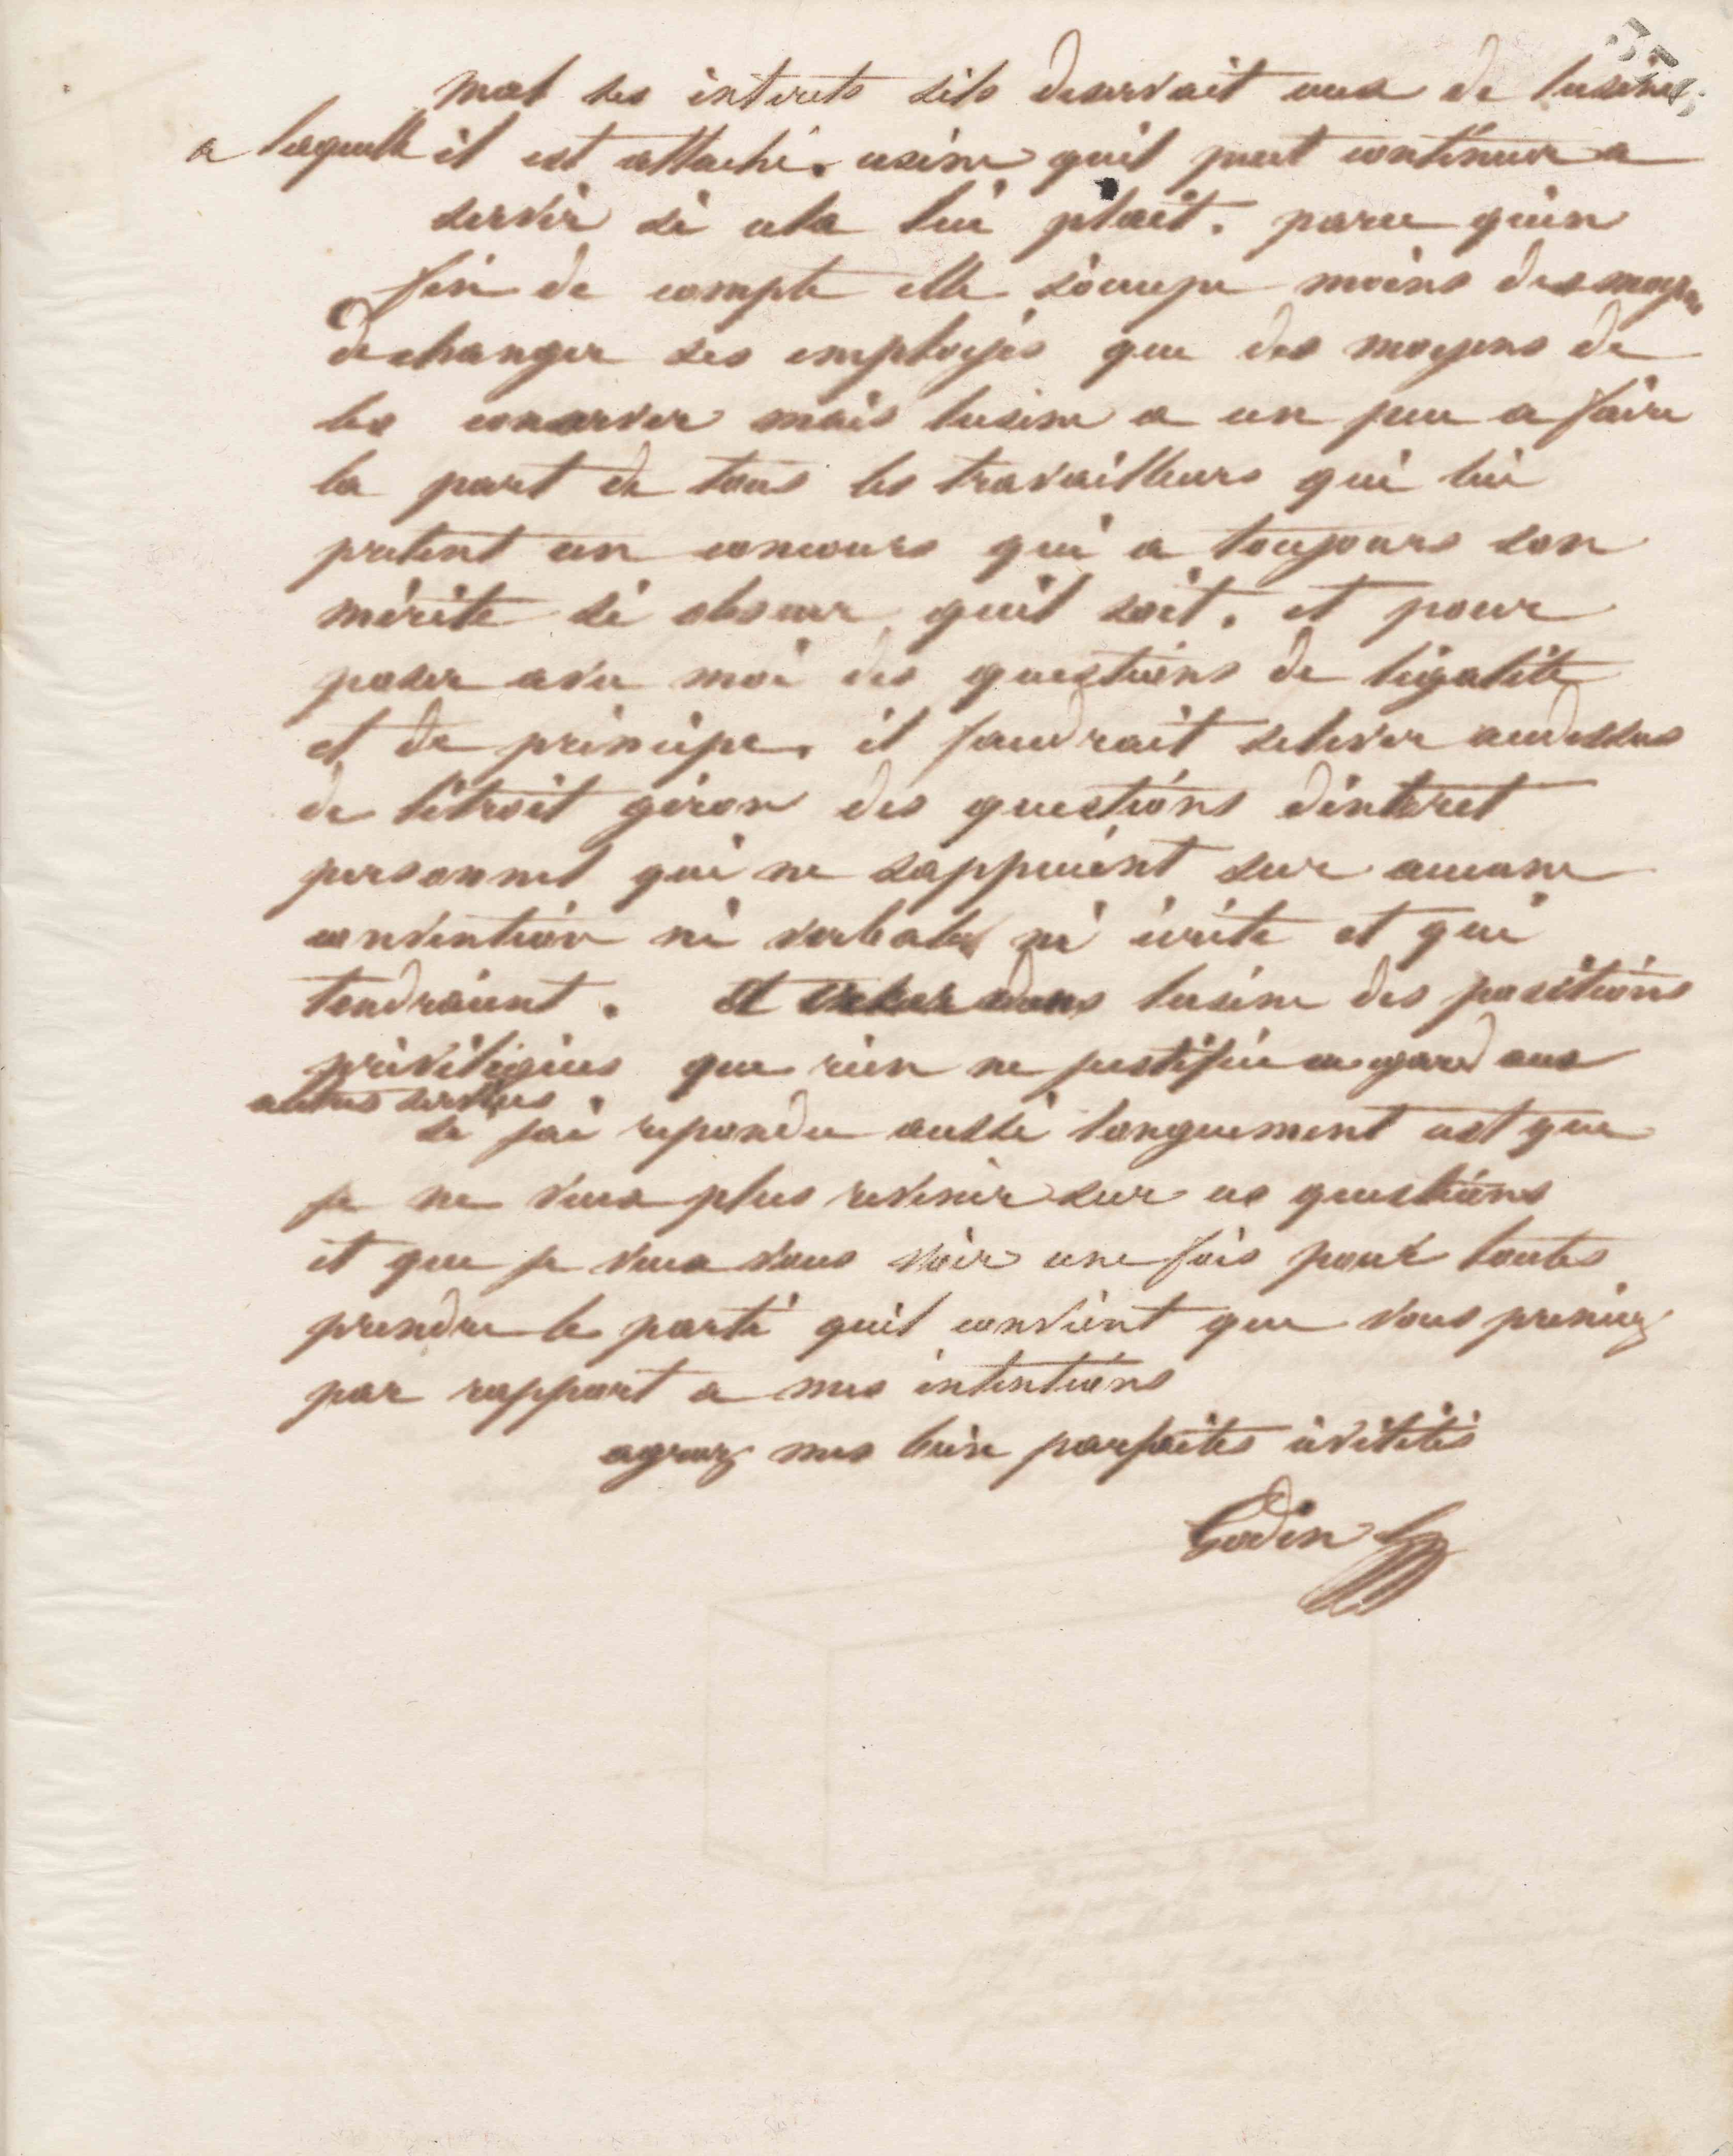 mal ses interets sils desservait ceux de lusine
a laquelle il est attaché. usine quil peut continuer a
servir si cela lui plait. parce quen
fin de compte elle soccupe moins des moyens
de changer ses employés que des moyens de
les conserver mais lusine a un peu a faire
la part de tous les travailleurs qui lui
pretent un concours qui a toujours son
mérite si obscur quil soit. et pour
poser avec moi des questions de légalité
et de principe. il faudrait selever audessus
de létroit giron des questions dinteret
personnel qui ne sappuient sur aucune
convention ni verbale ni écrite et qui
tendraient. a créer dans lusine des positions
privilégiées que rien ne justifie eu egard aux
autres services.
si jai repondu aussi longuement cest que
je ne veux plus revenir sur ces questions
et que je veux vous voir une fois pour toutes
prendre le parti quil convient que vous preniez
par rapport a mes intentions
agreez mes bien parfaites civilités
Godin